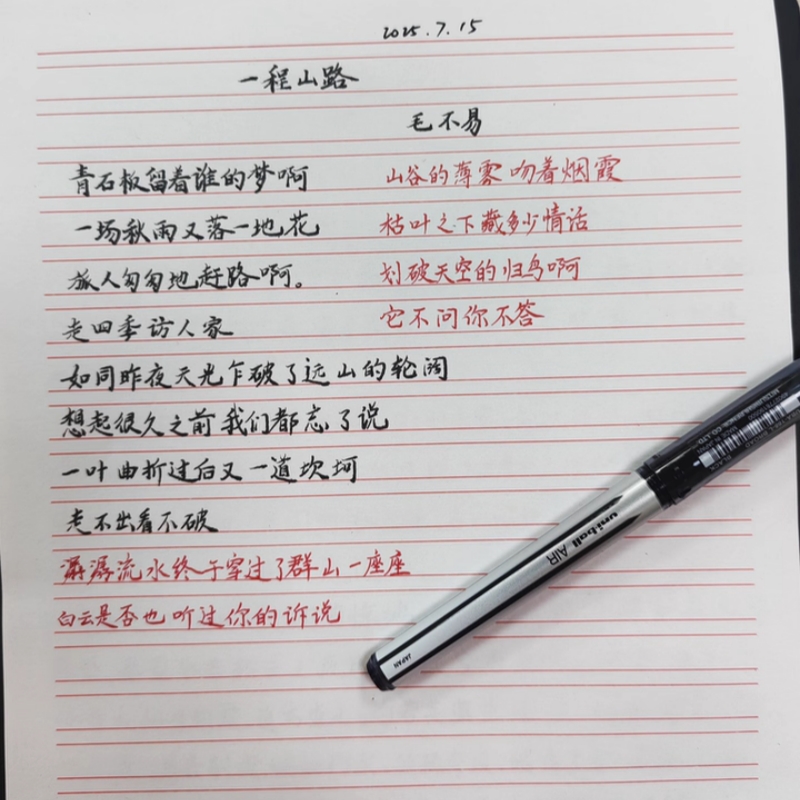 2025.7.15
一程山路
毛不易
青石板留着谁的梦啊
一场秋雨又落一地花
旅人匆匆地赶路啊。
走四季访人家
如同昨夜天光乍破了远山的轮阔
想起很久之前我们都忘了说
一叶曲折过后又一道坎坷
走不出看不破
潺潺流水终于穿过了群山一座座
白云是否也听过你的诉说
山谷的薄雾吻着烟霞
枯叶之下藏多少情话
划破天空的归鸟啊
它不问你不答
uni-ball AIR
JAPAN
BLACK